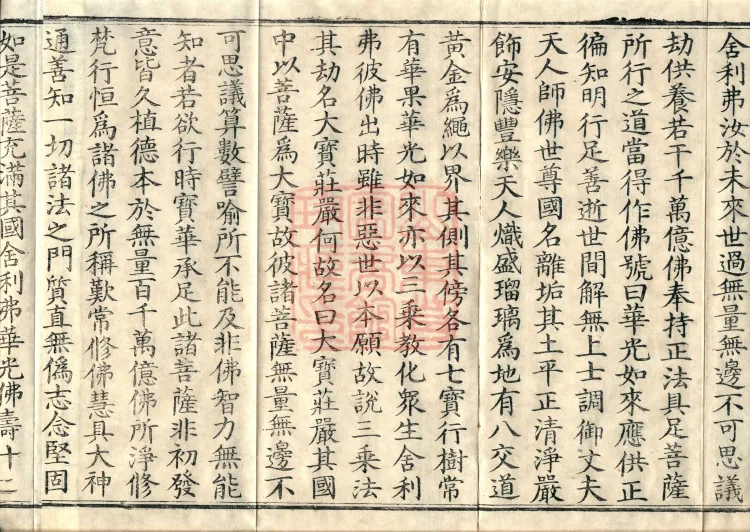 舍利弗汝於未來世過無量無邊不可思議
劫供養若干千萬億佛奉持正法具足菩薩
所行之道當得作佛號曰華光如來應供正
徧知明行足善逝世間解無上士調御丈夫
天人師佛世尊國名離垢其土平正清淨嚴
飾安隱豐樂天人熾盛瑠璃為地有八交道
黃金為繩以界其側其傍各有七寶行樹常
有華果華光如來亦以三乘教化眾生舍利
弗彼佛出時雖非惡世以本願故說三乘法
其劫名大寶莊嚴何故名曰大寶莊嚴其國
中以菩薩為大寶故彼諸菩薩無量無邊不
可思議算數譬喻所不能及非佛智力無能
知者若欲行時寶華承足此諸菩薩非初發
意皆久植德本於無量百千萬億佛所淨修
梵行恒為諸佛之所稱歎常修佛慧具大神
通善知一切諸法之門質直無偽志念堅固
如是菩薩充滿其國舍利弗華光佛壽十二